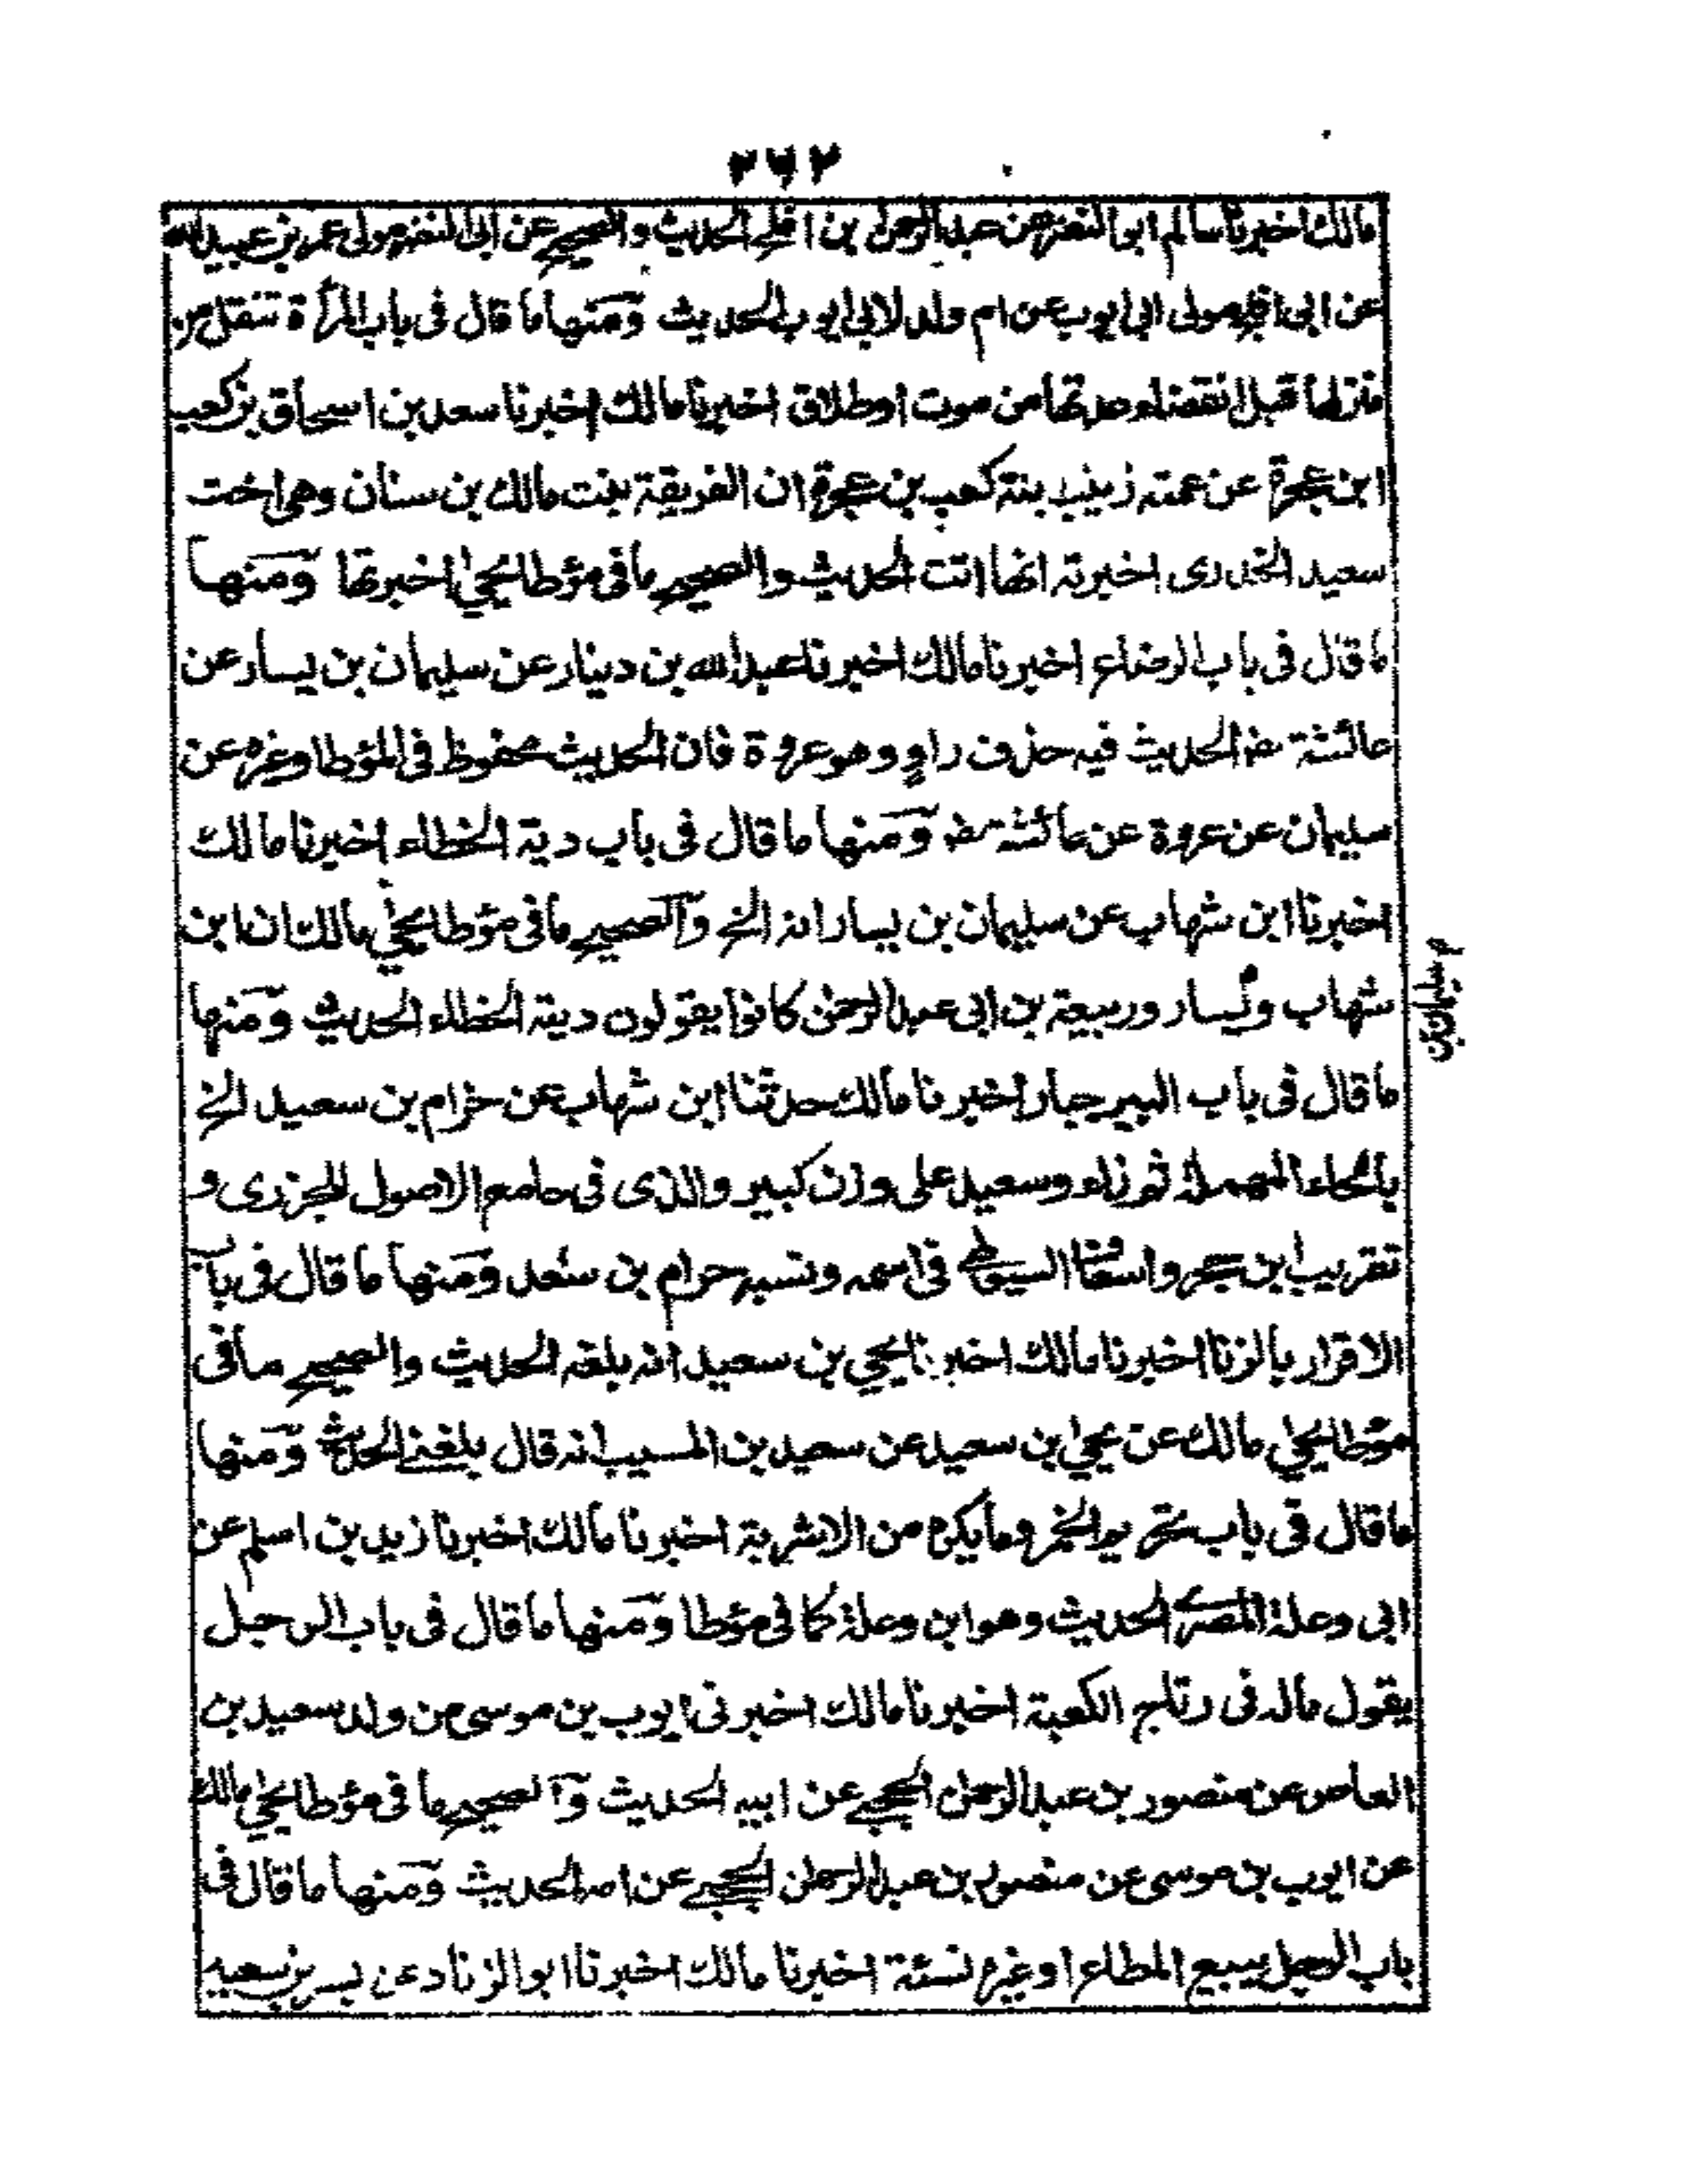 ٢٦٢
مالك اخبرنا سالم ابو النضر عن عبد الرحمن بن افلح الحديث والصحيح عن ابى النضر مولى عمر بن عبيد الله
عن ابى افلح مولى ابى ايوب عن ام ولد لابى ايوب الحديث ومنها ما قال فى باب المرأة تنتقل من
منزلها قبل انقضاء عدتها من موت او طلاق اخبرنا مالك اخبرنا سعد بن اسحاق بن كعب
ابن عجرة عن عمته زينب بنة كعب بن عجرة ان الفريقة بنت مالك بن سنان وهى اخت
سعيد الخدرى اخبرته انها اتت الحديث والصحيح ما فى مؤطا يحيٰ اخبرتها ومنها
ما قال فى باب الرضاع اخبرنا مالك اخبرنا عبد الله بن دينار عن سليمان بن يسار عن
عائشة رضـ الحديث فيه حذف راوٍ وهو عروة فان الحديث محفوظ فى المؤطا وغيره عن
سليمان عن عروة عن عائشة رضـ ومنها ما قال فى باب دية الخطاء اخبرنا مالك
اخبرنا ابن شهاب عن سليمان بن يسار انه الخ والصحيح ما فى مؤطا يحيٰ مالك ان ابن
شهاب و يسار وربيعة بن ابى عبد الرحمٰن كانوا يقولون دية الخطاء الحديث ومنها
م سليمان بن
ما قال فى باب البير جبار اخبرنا مالك حدثنا ابن شهاب عن حزام بن سعيد الخ
بالحاء المهملة ثم زاء وسعيد على وزن كبير والذى فى جامع الاصول للجزرى و
تقريب ابن حجر واسعاف السيوطے فى اسمه ونسبه حرام بن سعد ومنها ما قال فى باب
الاقرار بالزنا اخبرنا مالك اخبرنا يحيى بن سعيد انه بلغه الحديث والصحيح ما فى
مؤطا يحيٰ مالك عن يحيٰ بن سعيد عن سعيد بن المسيب انه قال بلغنے الحديث ومنها
ما قال فى باب تحريم الخمر وما يكره من الاشربة اخبرنا مالك اخبرنا زيد بن اسلم عن
ابى وعلة المصرے الحديث وهو ابن وعلة كما فى مؤطا ومنها ما قال فى باب الرجل
يقول ماله فى رتاج الكعبة اخبرنا مالك اخبرنى ايوب بن موسى من ولد سعيد بن
العاص عن منصور بن عبد الرحمٰن الحجبے عن ابيه الحديث والصحيح ما فى مؤطا يحيٰ مالك
عن ايوب بن موسى عن منصور بن عبد الرحمٰن الحجبے عن امه الحديث ومنها ما قال فى
باب الرجل يبيع المطاع او غيره نسئة اخبرنا مالك اخبرنا ابو الزناد عن بسر بن سعيد